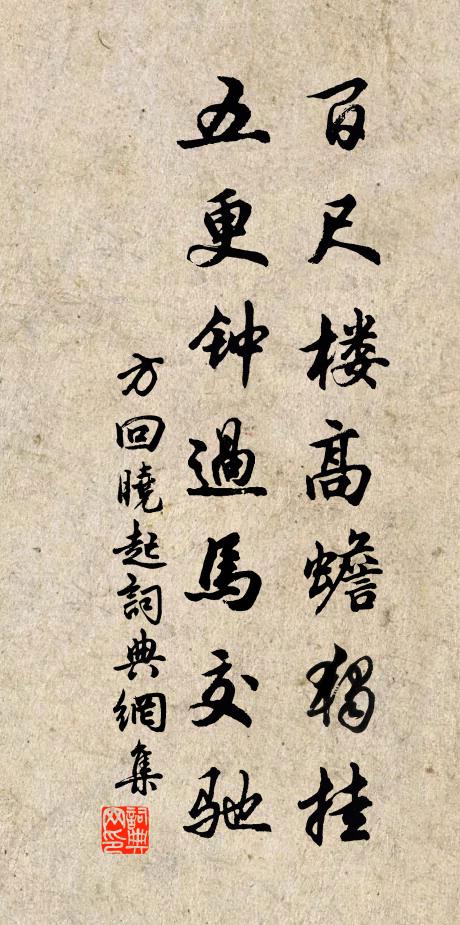 百尺楼高蟾独挂
五更钟過馬交驰
方回曉起詞典網集
詞典網印